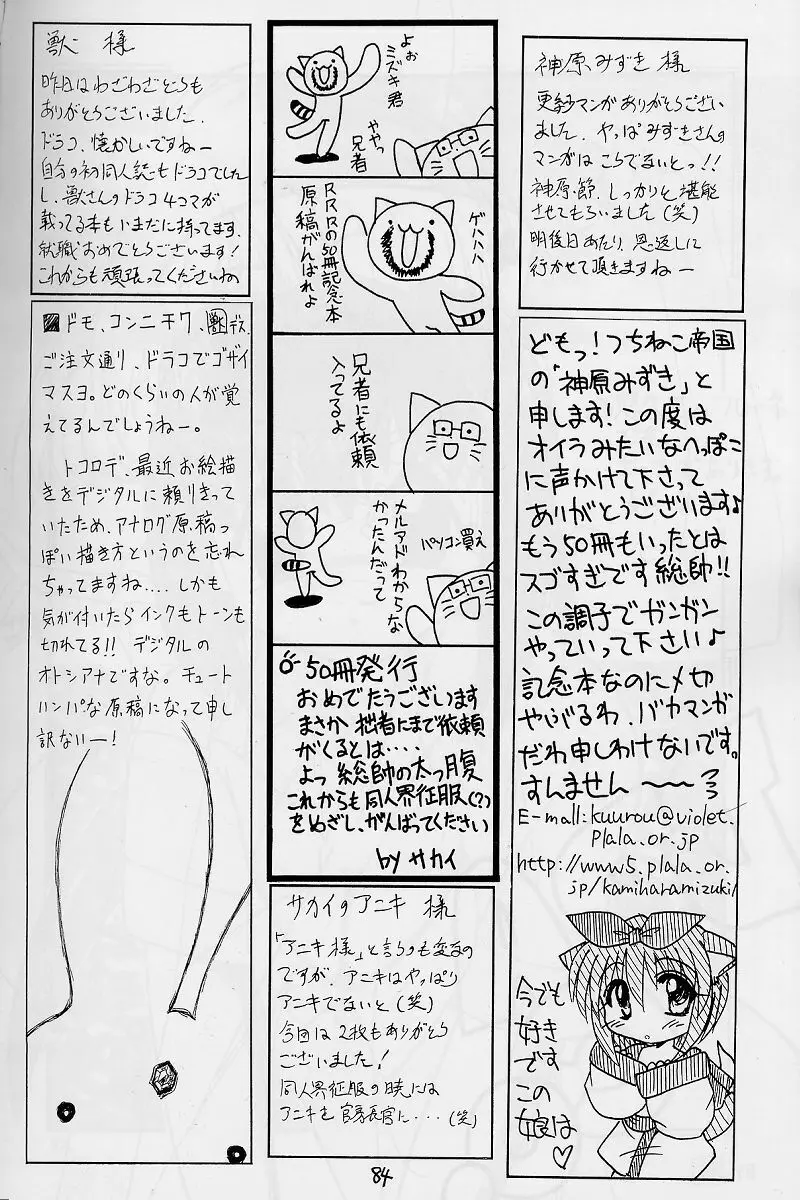 神原みずき 様
更紗マンガありがとうござい
ました。やっぱみずきさんの
マンガは こうでないとっ!!
神原節、しっかりと堪能
させてもらいました(笑)
明後日あたり、恩返しに
行かせて頂きますねー
どもっ!つちねこ帝国
の「神原みずき」と
申します!この度は
オイラみたいなへっぽこ
に声かけて下さって
ありがとうございます♪
もう50冊もいったとは
スゴすぎです総帥!!
この調子でガンガン
やっていって下さい♪
記念本なのに〆切
やぶるわ、バカマンガ
だわ申しわけないです。
すんません〜〜
E-mail:kuurou@violet.
plala.or.jp
http://www5.plala.or.
jp/kamiharamizuki/
今でも
好き
です
この
娘は♡
よぉ
ミズキ君
ややっ
兄者
ゲハハハ
RRRの50冊記念本
原稿がんばれよ
兄者にも依頼
入ってるよ
パソコン買え
メルアドわからな
かったんだって
50冊発行
おめでたうございます
まさか 拙者にまで依頼
がくるとは‥‥
よっ 総帥の太っ腹
これからも同人界征服(?)
をめざし、がんばってください
by サカイ
サカイのアニキ 様
「アニキ様」と言うのも変なの
ですが、アニキはやっぱり
アニキでないと(笑)
今回は2枚もありがとう
ございました!
同人界征服の暁には
アニキを官房長官に・・・(笑)
獣 様
昨日はわざわざどうも
ありがとうございました。
ドラコ、懐かしいですねー
自分の初同人誌もドラコでした
し、獣さんのドラコ4コマが
載ってる本もいまだに持ってます。
就職おめでとうございます!
これからも頑張ってくださいね
ドモ、コンニチワ、獣デス。
ご注文通り、ドラコでゴザイ
マスヨ。どのくらいの人が覚
えてるんでしょうねー。
トコロデ、最近お絵描
きをデジタルに頼りきって
いたため、アナログ原稿っ
ぽい描き方というのを忘れ
ちゃってますね‥‥しかも
気が付いたらインクもトーンも
切れてる!! デジタルの
オトシアナですな。チュート
ハンパな原稿になって申し
訳ないー!
84